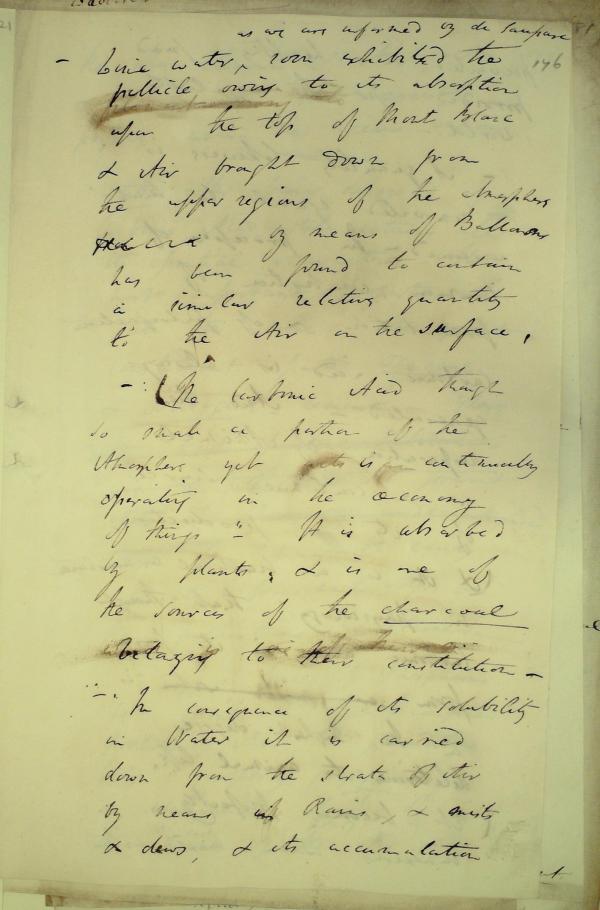 as we are informed by de Saussure
146
- Lime water, soon exhibited the
pellicle owing to its absorption
upon the top of Mont Blanc
& Air brought down from
the upper regions of the Atmosphere
by means of Balloons
has been found to contain
a similar relative quantity
to the Air on the surface,
-: The Carbonic Acid though
so small a portion of the
Atmosphere yet is continually
operating in the oeconomy
of things - It is absorbed
by plants, & is one of
the sources of the charcoal
belonging to their constitution -
-. In consequence of its solubility
in Water it is carried
down from the strata of Air
by means Rains, & mists
& dews, & its accumulation